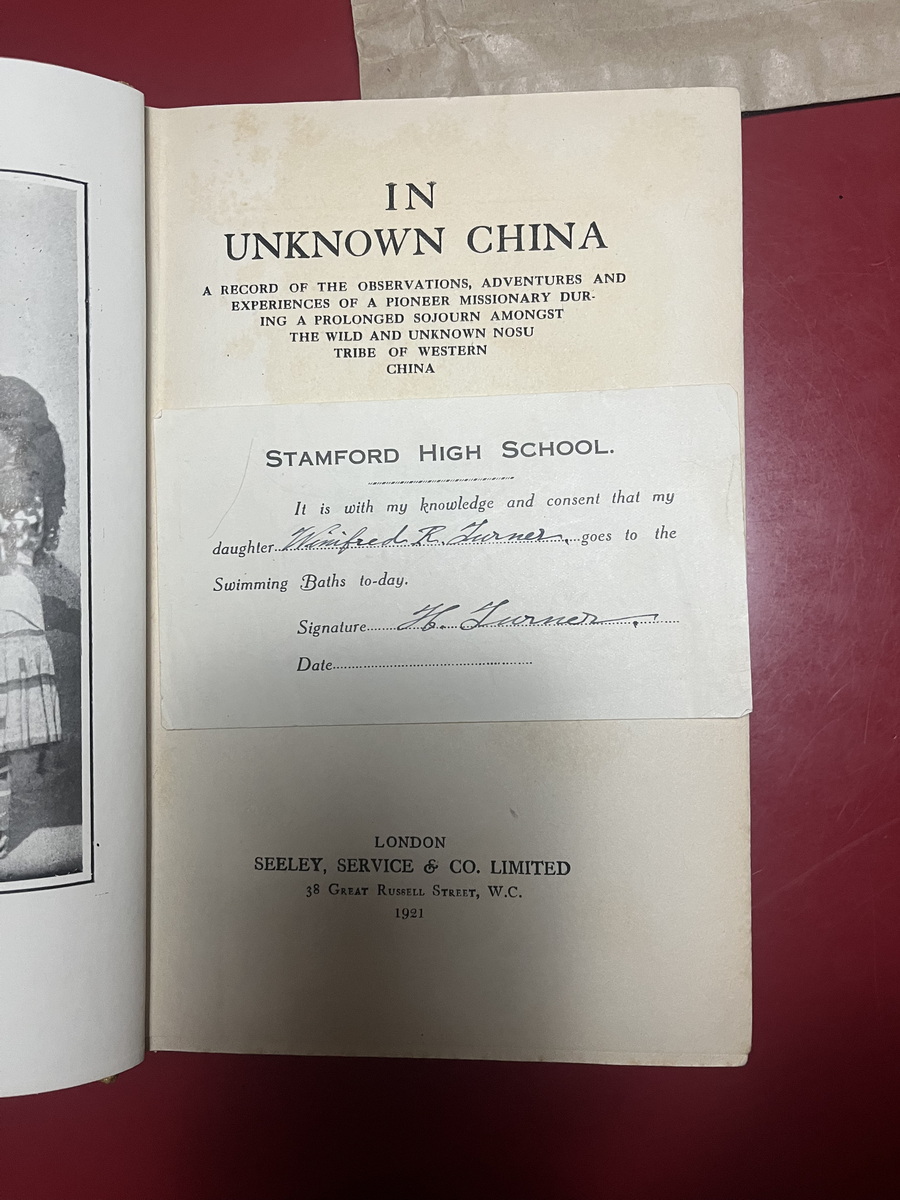 IN
UNKNOWN CHINA
A RECORD OF THE OBSERVATIONS, ADVENTURES AND
EXPERIENCES OF A PIONEER MISSIONARY DUR-
ING A PROLONGED SOJOURN AMONGST
THE WILD AND UNKNOWN NOSU
TRIBE OF WESTERN
CHINA
STAMFORD HIGH SCHOOL.
It is with my knowledge and consent that my
daughter Winifred R. Turner. goes to the
Swimming Baths to-day.
Signature H. Turner.
Date
LONDON
SEELEY, SERVICE & CO. LIMITED
38 GREAT RUSSELL STREET, W.C.
1921